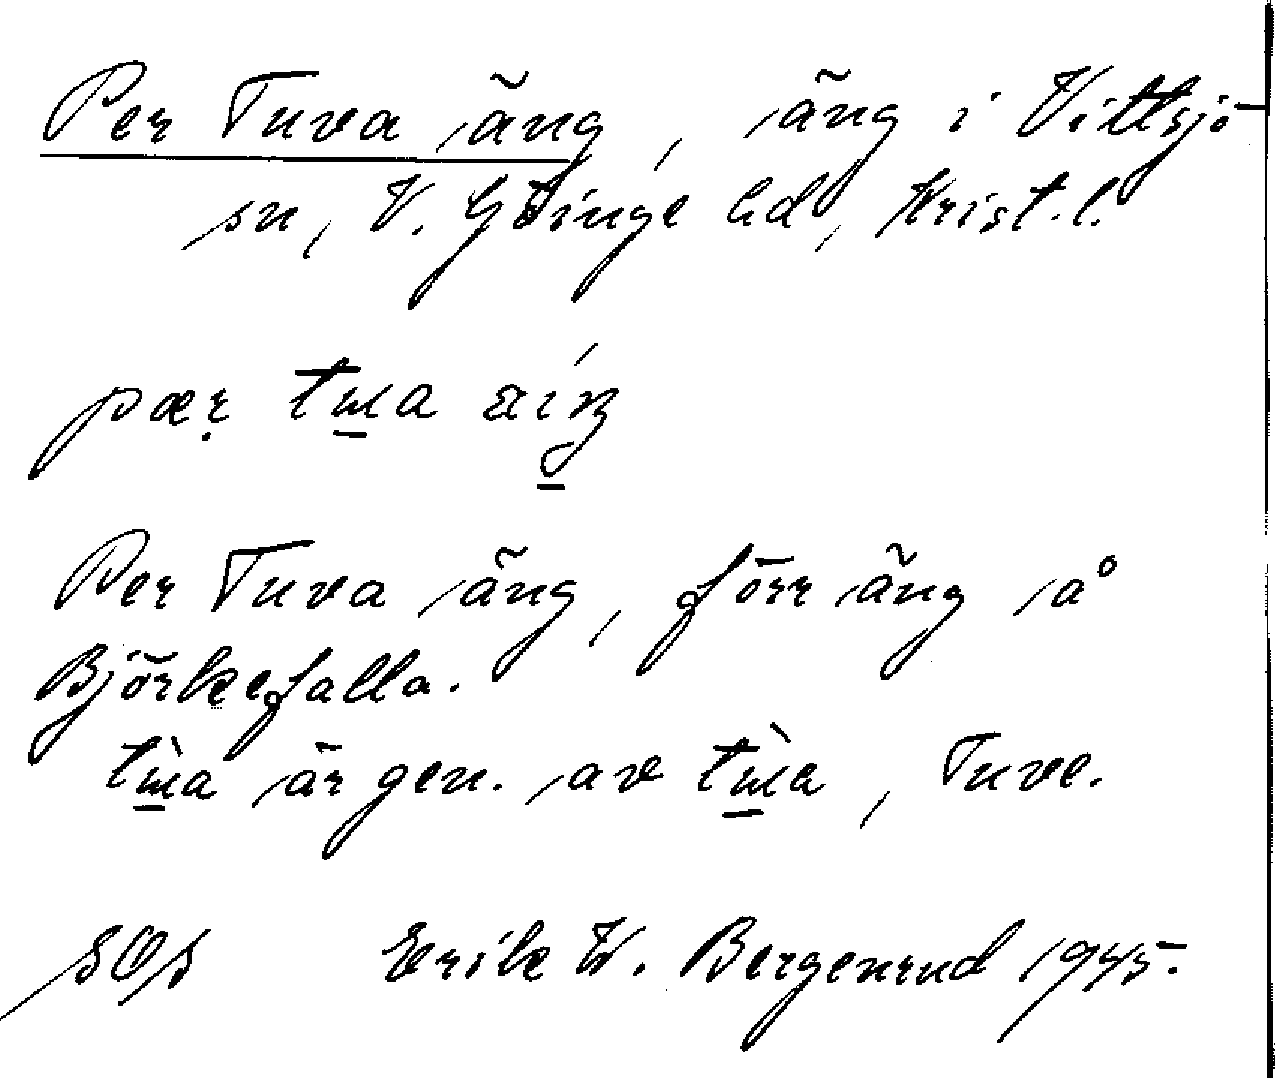 Per Tuva äng, äng i Vittsjö
sn, V. Göinge hd, Krist. l.
Per Tuva äng, förr äng å
Björkefalla.
är gen. av , Tuve.
SOS Erik W. Bergenrud 1945.